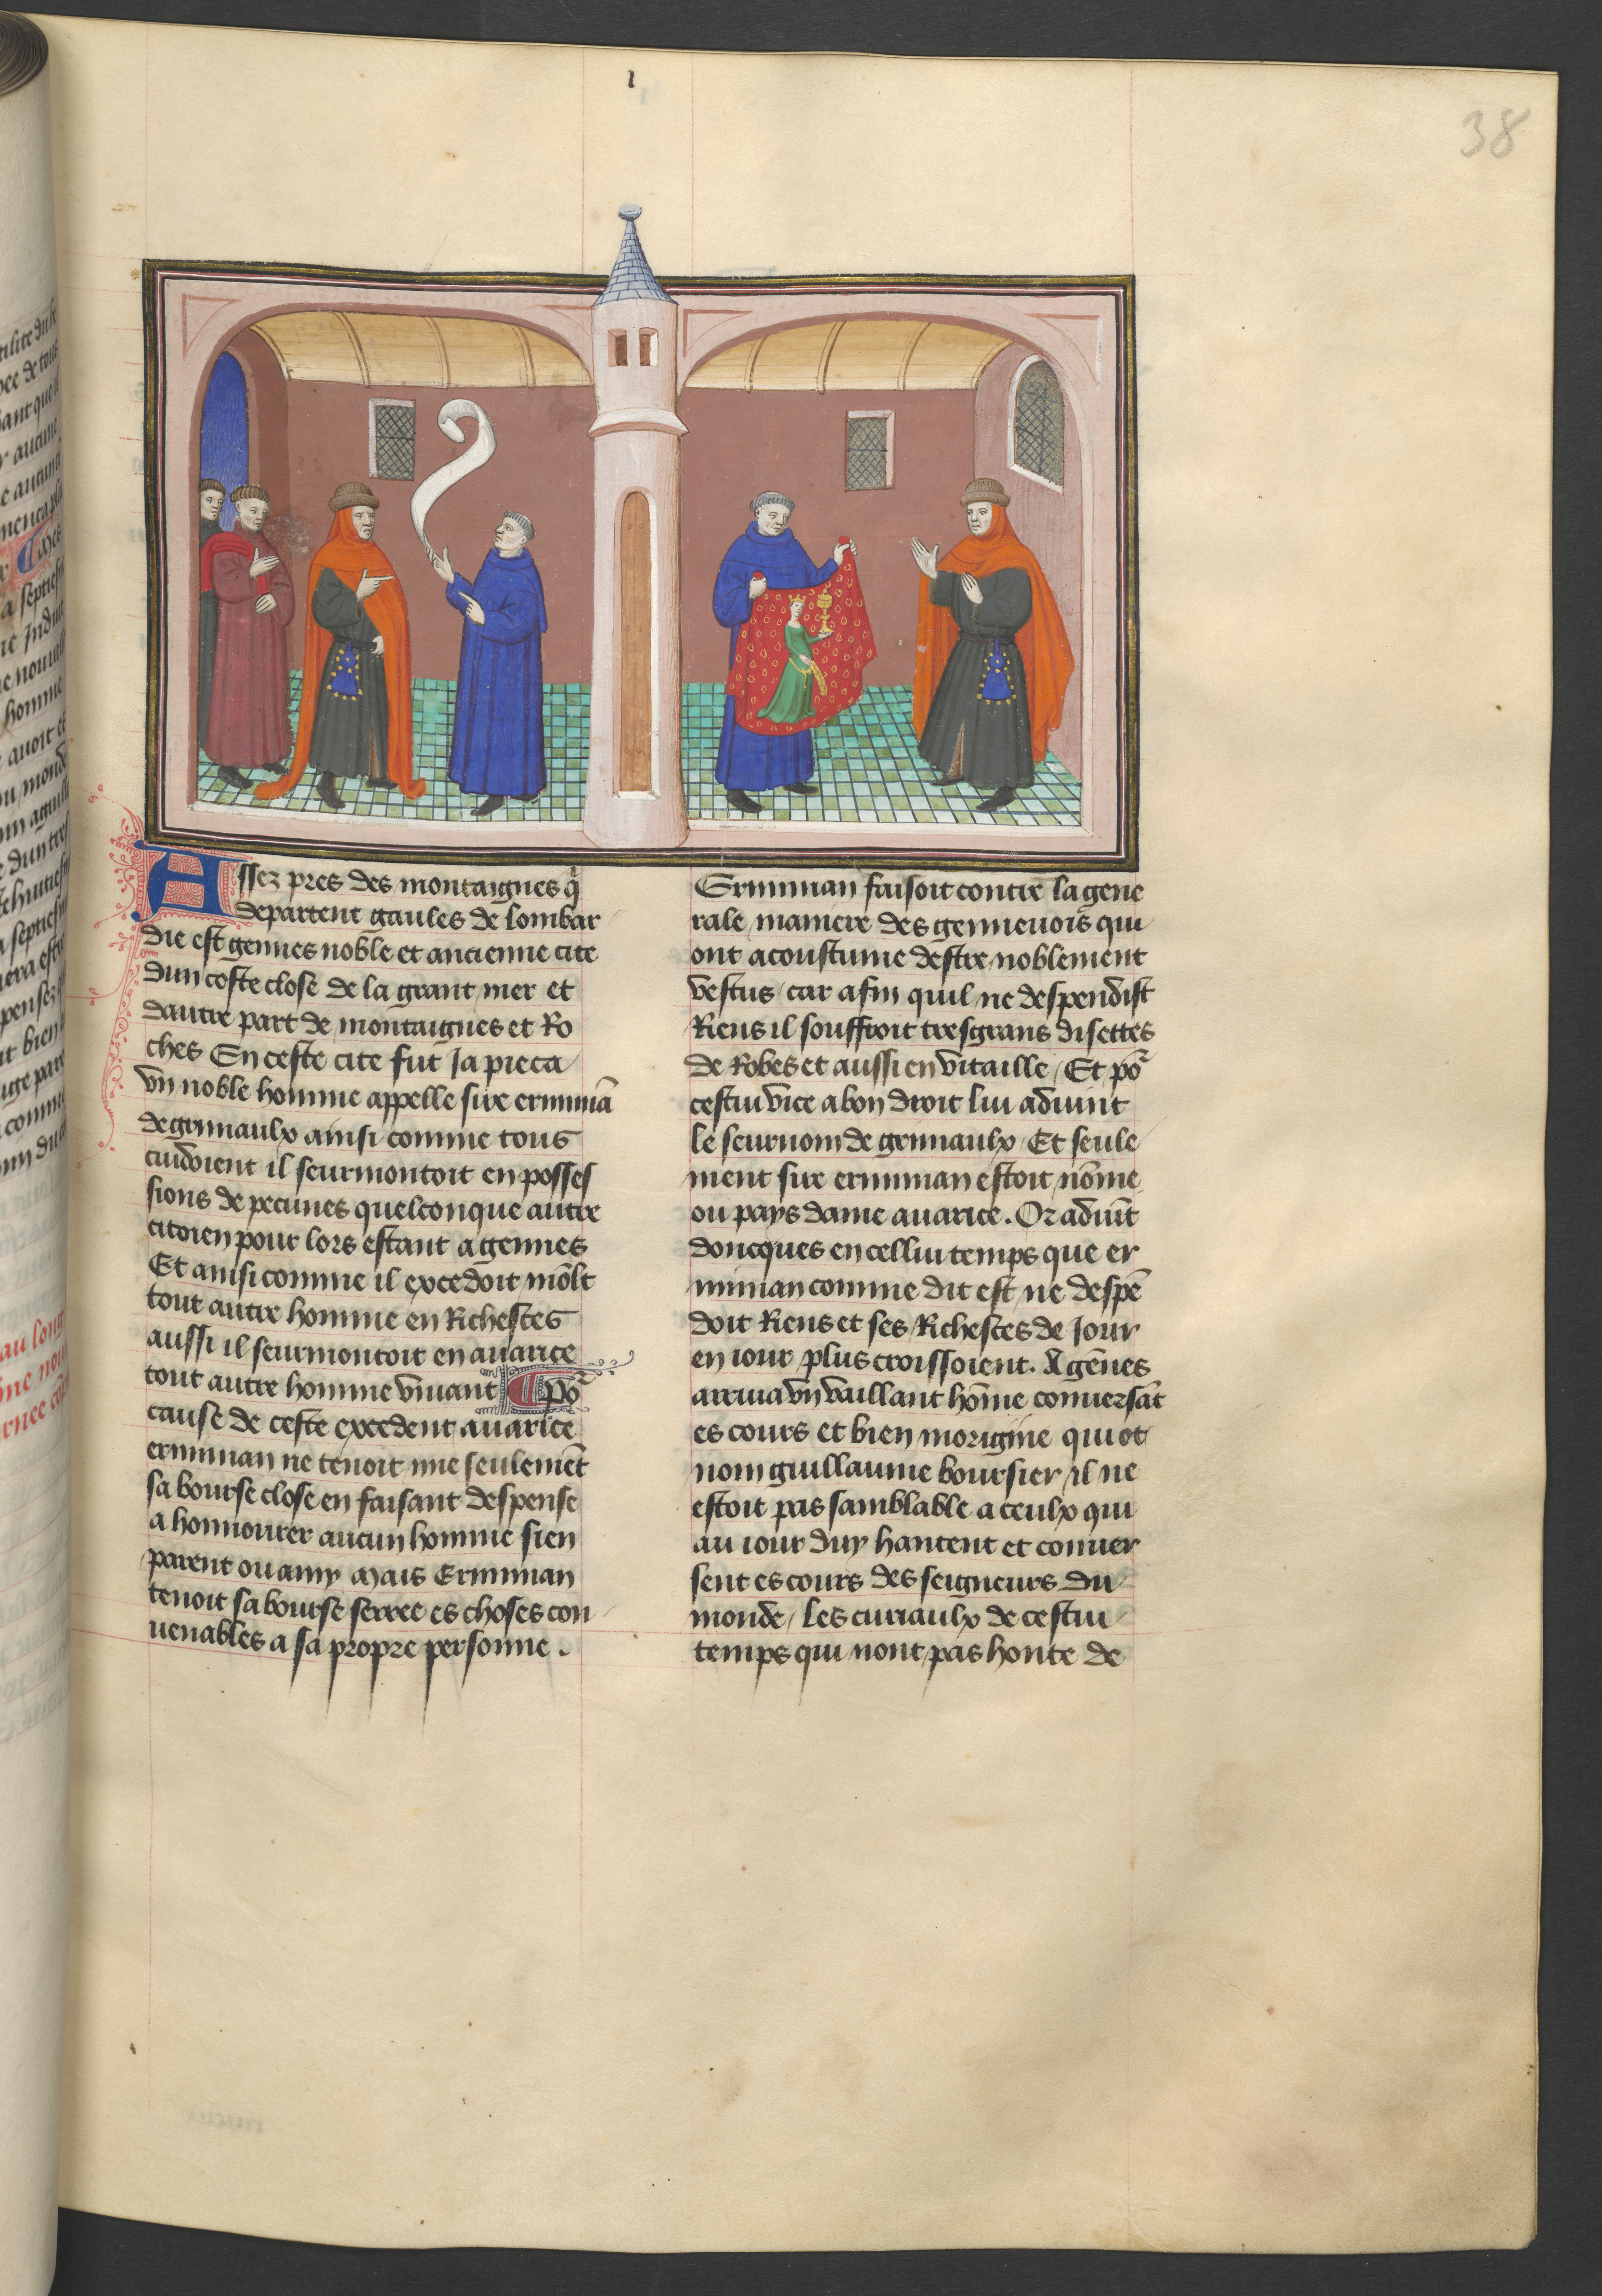 38
Assez pres des montaignes q̄
departent gaules de lombar
die est gennes noble et ancienne cite
dun coste close de la grant mer et
dautre part de montaignes et Ro
ches En ceste cite fut Ja pieca
vn noble homme appelle sire erminiā
de grimaulx ainsi comme tous
cuidoient il seurmontoit en posses
sions de pecunes quelconque autre
citoien pour lors estant a gennes
Et ainsi comme il excedoit mōlt
tout autre homme en Richesces
aussi il seurmontoit en auarice
tout autre homme viuant ¶ po᷑
cause de ceste excedent auarice
erminian ne tenoit mie seulemēt
sa bourse close en faisant despense
a honnourer aucun homme sien
parent ou amy Mais Erminian
tenoit sa bourse serree es choses con
uenables a sa propre personne .
Erminian faisoit contre la gene
rale maniere des genneuois qui
ont acoustume destre noblement
vestus / car afin quil ne despendist
Riens il souffroit tresgrans disettes
de Robes et aussi en vitaille / Et po᷑
cestui vice a bon droit lui aduint
le seurnom de grimaulx / Et seule
ment sire erminian estoit nōme
ou pays dame auarice . Or aduīt
doncques en cellui temps que er
minian comme dit est ne despē
doit Riens et ses Richesces de Jour
en iour plus croissoient . A gēnes
arriua vn vaillant hōme conuersāt
es cours et bien morigine qui ot
nom guillaume boursier / il ne
estoit pas samblable a ceulx qui
au iour duy hantent et conuer
sent es cours des seigneurs du
monde / Les curiaulx de cestui
temps qui nont pas honte de